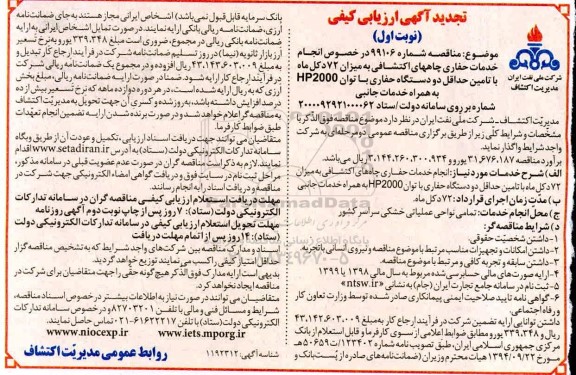 تجدید آگهی ارزیابی کیفی
(نوبت اول)
شرکت ملی نفت ایران
مدیریت اکتشاف
موضوع: مناقصه شماره ۹۹۱۰۶ در خصوص انجام
خدمات حفاری چاههای اکتشافی به میزان ۷۲ دکل ماه
با تامین حداقل دو دستگاه حفاری با توان HP2000
به همراه خدمات جانبی
شماره بر روی سامانه دولت/ستاد ۲۰۰۰۰۹۲۹۲۱۰۰۰۰۶۲
مدیریت اکتشاف ـ شرکت ملی نفت ایران در نظر دارد موضوع مناقصه فوق الذکر با
مشخصات و شرایط کلی زیر از طریق برگزاری مناقصه عمومی دو مرحله‌ای به شرکت
واجد شرایط واگذار نماید.
برآورد مناقصه ۳۱,۶۷۶,۱۸۷ یورو و ۳,۱۴۴,۲۶۰,۳۰۰,۹۳۴ ریال می‌باشد.
الف) شرح خدمات مورد نیاز: انجام خدمات حفاری چاه‌های اکتشافی به میزان
۷۲ دکل ماه با تامین حداقل دو دستگاه حفاری با توان HP2000 به همراه خدمات جانبی
ب) مدت زمان اجرای قرارداد: ۷۲ دکل ماه.
ج) محل انجام خدمات: تمامی نواحی عملیاتی خشکی سراسر کشور
د) شرایط مناقصه گر:
۱- داشتن شخصیت حقوقی.
۲- داشتن امکانات و تجهیزات مناسب مرتبط با موضوع مناقصه و نیروی انسانی با تجربه.
۳- داشتن سابقه و تجربه کافی و مرتبط با موضوع مناقصه.
۴- ارایه صورت های مالی حسابرسی شده مربوط به سال مالی ۱۳۹۸ یا ۱۳۹۹
۵- ثبت نام در سامانه جامع تجارت ایران (جام) به نشانی «ntsw.ir»
۶- گواهی نامه تایید صلاحیت ایمنی پیمانکاری صادر شده توسط وزارت تعاون کار
و رفاه اجتماعی.
داشتن توانایی ارایه تضمین شرکت در فرآیند ارجاع کار به مبلغ ۴۳,۱۴۲,۶۰۳,۰۰۹
ریال و ۳۳۹,۳۴۸ یورو مطابق ضوابط اعلامی از سوی کارفرما و قابل استعلام از بانک
مرکزی جمهوری اسلامی ایران، طبق تصویب نامه شماره ۱۲۳۴۰۲/ت۵۰۶۵۹هـ
مورخ ۱۳۹۴/۰۹/۲۲ هیات محترم وزیران (ضمانت‌نامه های صادره از پست بانک و
بانک سرمایه قابل قبول نمی باشد) اشخاص ایرانی مجاز هستند به جای ضمانت‌نامه
ارزی، ضمانت‌نامه ریالی بانکی ارایه نمایند. در صورت تمایل اشخاص ایرانی به ارایه
ضمانت‌نامه بانکی ریالی در مجموع، ضروری است مبلغ ۳۳۹,۳۴۸ یورو به نرخ تسعیر
ارز بازار ثانویه (نیما) در روز تسلیم ضمانت‌نامه شرکت در فرآیند ارجاع کار تبدیل و
به مبلغ ۴۳,۱۴۲,۶۰۳,۰۰۹ ریال افزوده و در مجموع یک ضمانت‌نامه بانکی ریالی شرکت
در فرآیند ارجاع کار ارایه شود. ضمنا در صورت ارایه ضمانت‌نامه ریالی، مبلغ بخش
ارزی که به ریال ارایه شده است، در هر دوره دوازده ماهه که نرخ تسعیر بیش از ده
درصد افزایش داشته باشد، به روز شده و کسری آن جهت تحویل به مدیریت اکتشاف
به مناقصه گر اعلام خواهد شد و در صورت برنده شدن ارایه تضمین انجام تعهدات
طبق ضوابط کارفرما.
متقاضیان می توانند جهت دریافت اسناد ارزیابی، تکمیل و عودت آن از طریق وبگاه
سامانه تدارکات الکترونیکی دولت (ستاد) به آدرس www.setadiran.ir اقدام
نمایند. لازم به ذکر است مناقصه گران در صورت عدم عضویت قبلی در سامانه مذکور،
مراحل ثبت نام در سایت فوق و دریافت گواهی امضاء الکترونیکی جهت شرکت در
مناقصه و دریافت اسناد را به انجام رسانند.
مهلت دریافت استعلام ارزیابی کیفی مناقصه گران در سامانه تدارکات
الکترونیکی دولت (ستاد): ۷ روز پس از چاپ نوبت دوم آگهی روزنامه
مهلت تحویل استعلام ارزیابی کیفی در سامانه تدارکات الکترونیکی دولت
(ستاد): ۱۴ روز پس از اتمام مهلت دریافت
اسناد و مدارک مناقصه بین شرکت‌های واجد شرایط که به تشخیص مناقصه گزار
حداقل امتیاز کیفی را کسب می نمایند توزیع خواهد گردید.
بدیهی است ارایه مدارک فوق الذکر هیچ گونه حقی را جهت متقاضیان برای شرکت در
مناقصه ایجاد نخواهد کرد.
متقاضیان می توانند در صورت نیاز به اطلاعات بیشتر در خصوص اسناد مناقصه،
شرایط و مسائل فنی و مالی با تلفن ۸۲۷۰۳۲۰۱ و در خصوص سامانه تدارکات
الکترونیکی دولت (ستاد) با تلفن ۶۱۶۲۲۲۱۷-۰۲۱ تماس حاصل نمایند.
www.niocexp.ir www.iets.mporg.ir
شناسه آگهی: ۱۱۹۲۳۱۲
روابط عمومی مدیریت اکتشاف